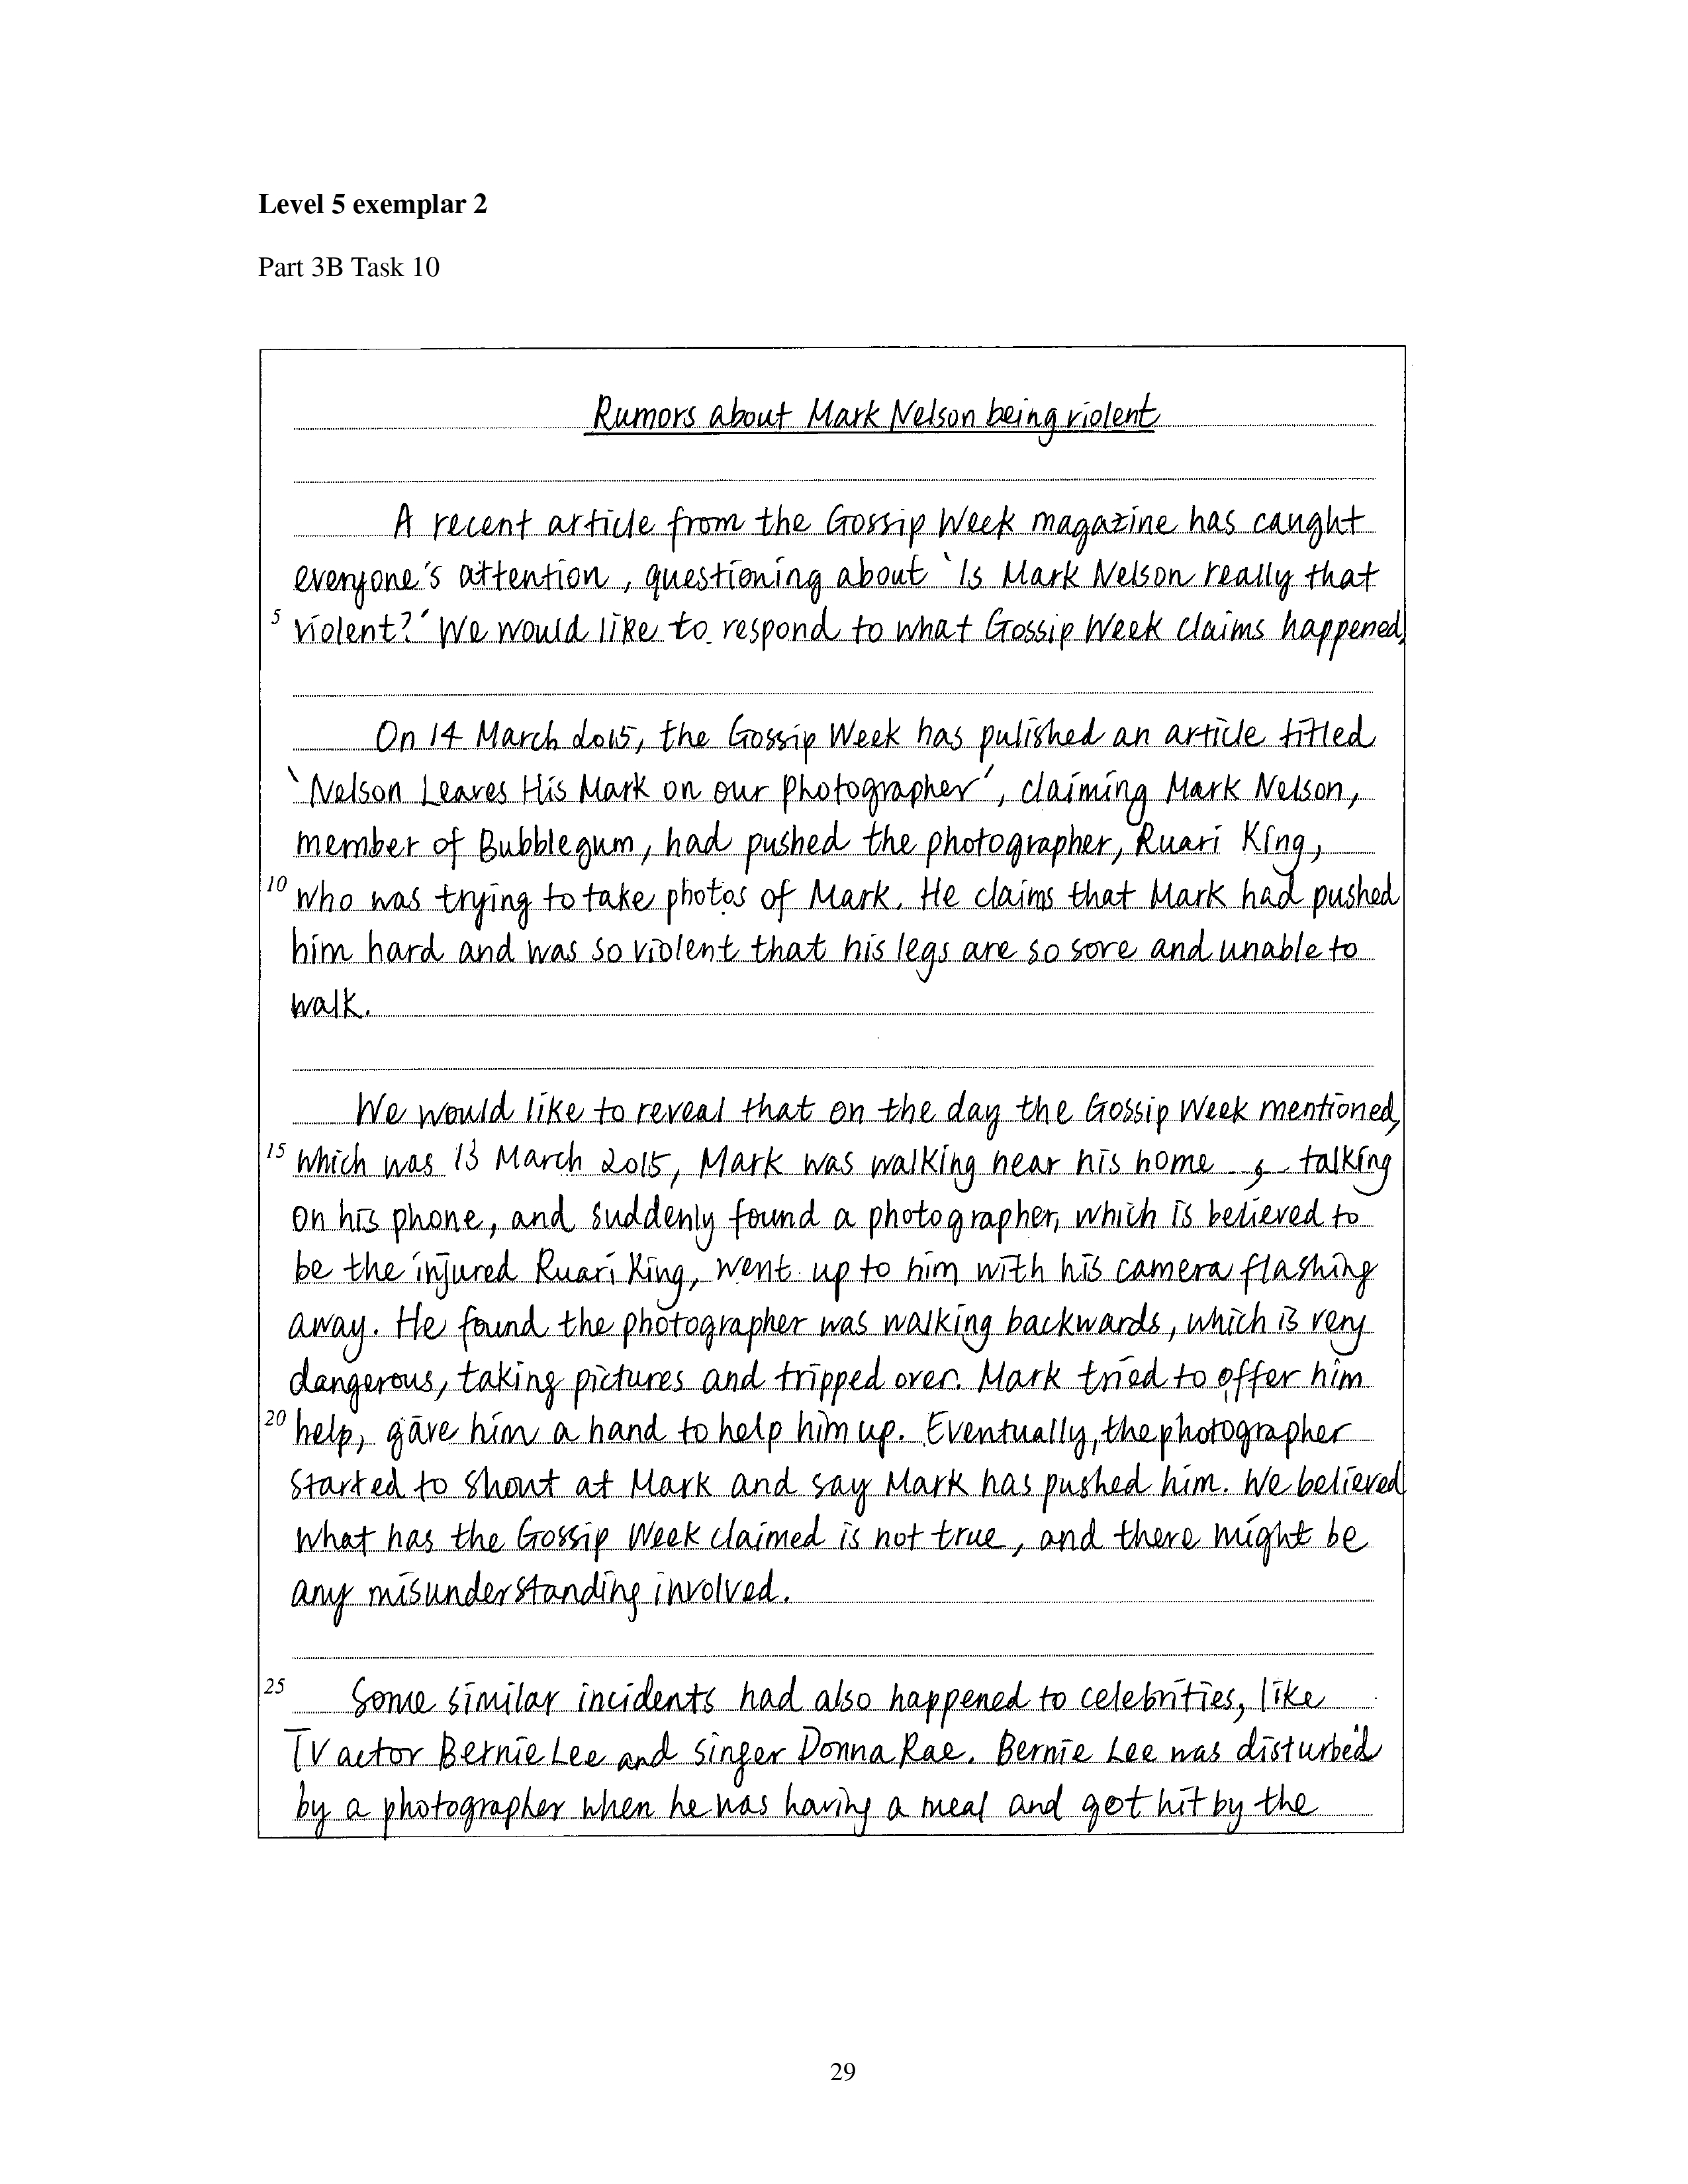 Level 5 exemplar 2
Part 3B Task 10
Rumors about Mark Nelson being violent
A recent article from the Gossip Week magazine has caught
everyone's attention, questioning about 'Is Mark Nelson really that
5 violent?' We would like to respond to what Gossip Week claims happened.
On 14 March 2015, the Gossip Week has pulished an article titled
'Nelson Leaves His Mark on our photographer', claiming Mark Nelson,
member of Bubblegum, had pushed the photographer, Ruari King,
10 who was trying to take photos of Mark. He claims that Mark had pushed
him hard and was so violent that his legs are so sore and unable to
walk.
We would like to reveal that on the day the Gossip Week mentioned,
15 which was 13 March 2015, Mark was walking near his home , talking
on his phone, and suddenly found a photographer, which is believed to
be the injured Ruari King, went up to him with his camera flashing
away. He found the photographer was walking backwards, which is very
dangerous, taking pictures and tripped over. Mark tried to offer him
20 help, gave him a hand to help him up. Eventually, the photographer
started to shout at Mark and say Mark has pushed him. We believed
what has the Gossip Week claimed is not true, and there might be
any misunderstanding involved.
25 Some similar incidents had also happened to celebrities, like
TV actor Bernie Lee and singer Donna Rae. Bernie Lee was disturbed
by a photographer when he was having a meal and got hit by the
29